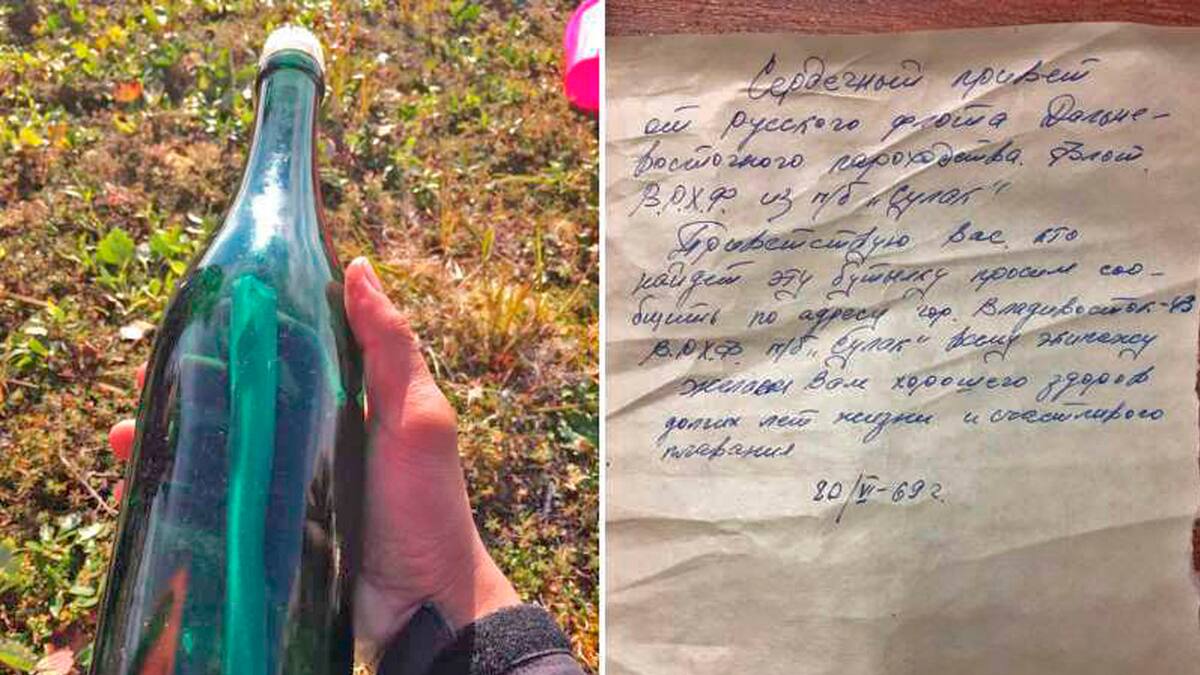 Сердечный привет
от русского флота Дальне-
восточного пароходства. Флот.
В.Р.Х.Ф. из п/б „Сулак"
Приветствую Вас, кто
найдет эту бутылку просим соо-
бщить по адресу гор. Владивосток-43
В.Р.Х.Ф. п/б „Сулак" всему экипажу
Желаем Вам хорошего здоров
долгих лет жизни и счастливого
плавания
20/VI-69 г.